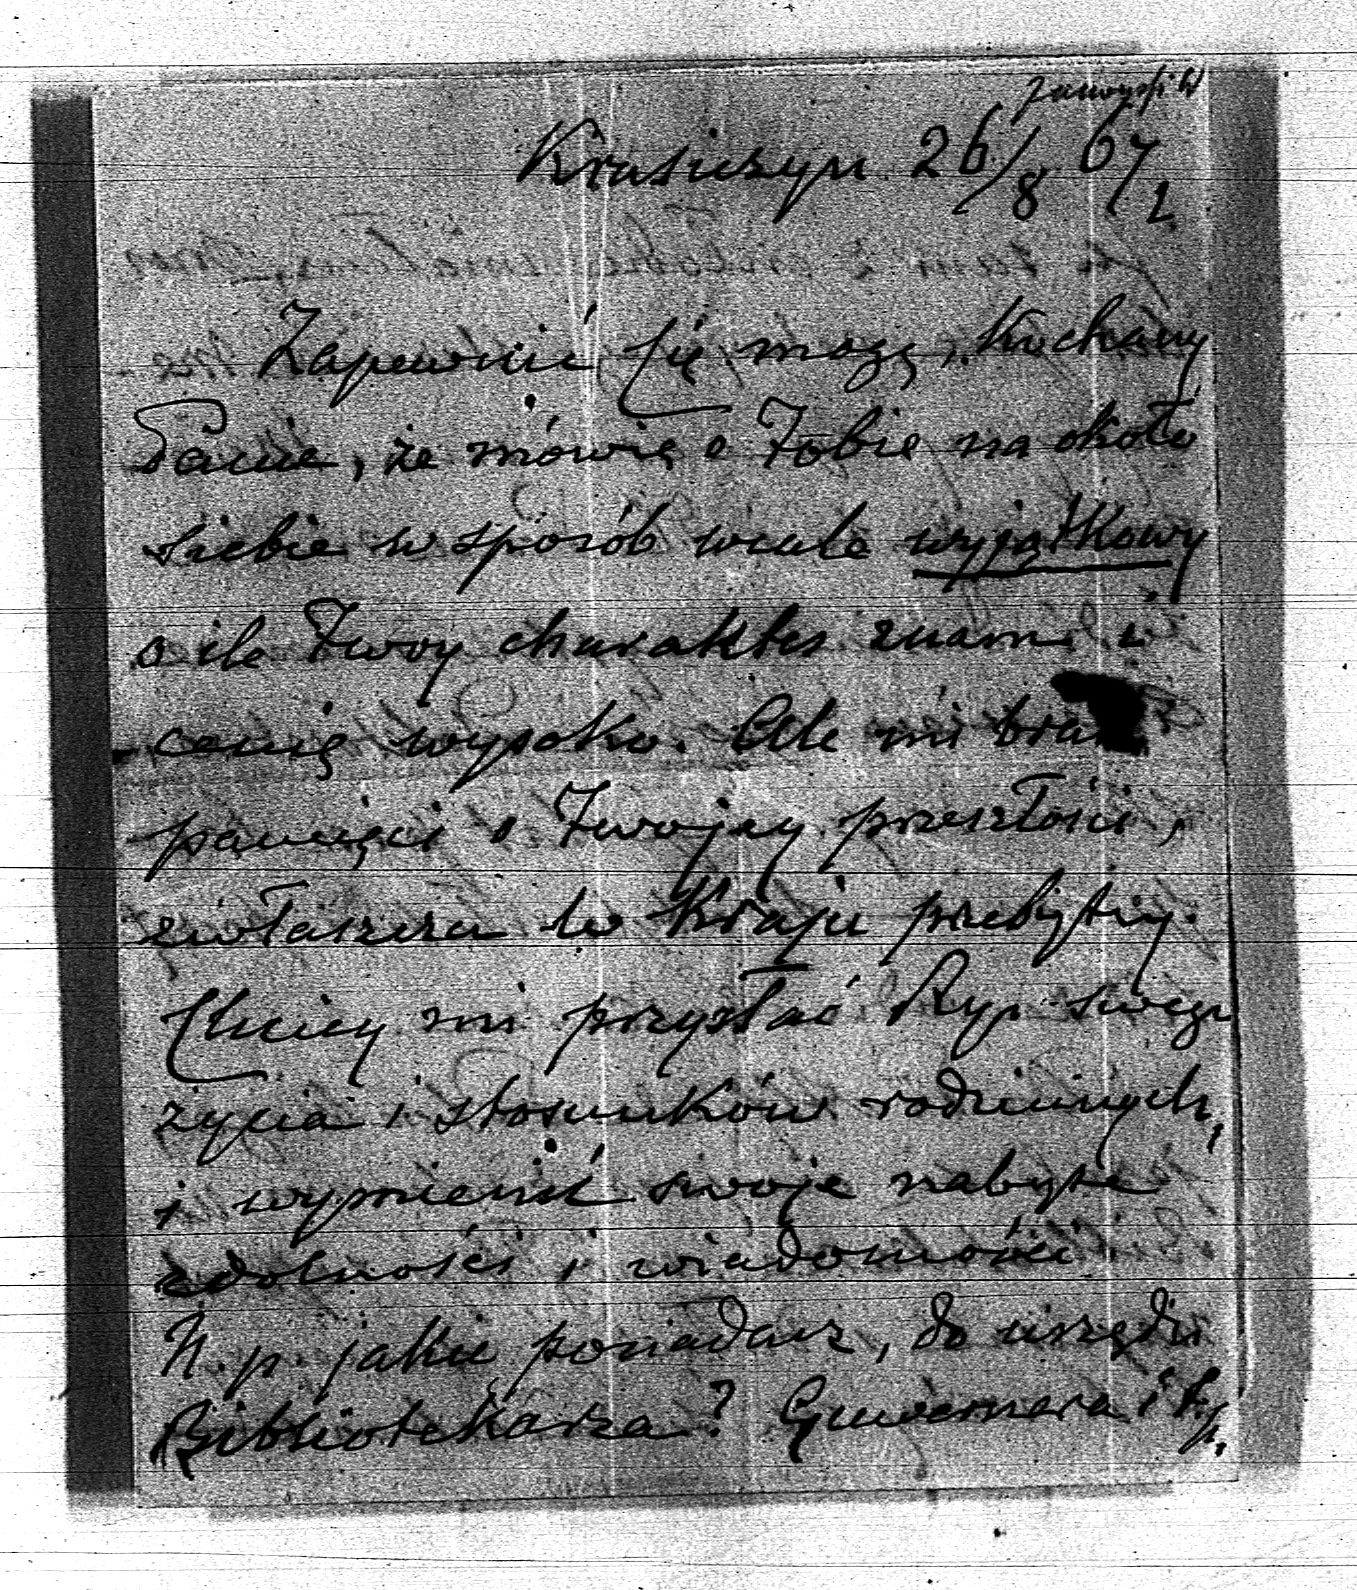 Zamoyski W
Krasiczyn 26/8 67
Zapewnić Cię mogę, Kochany
Panie, że mówię o Tobie na około
siebie w sposób wcale wyjątkowy
o ile Twoy charakter znam i
cenię wysoko. Ale mi brak
pamięci o Twojey przeszłości,
zwłaszcza w Kraju przebytey.
Chciey mi przysłać Rys swego
życia i stosunków rodzinnych,
i wymienić swoje nabyte
zdolności i wiadomości
N. p. jakie posiadasz, do urzędu
Bibliotekarza? Guwernera i t. p.